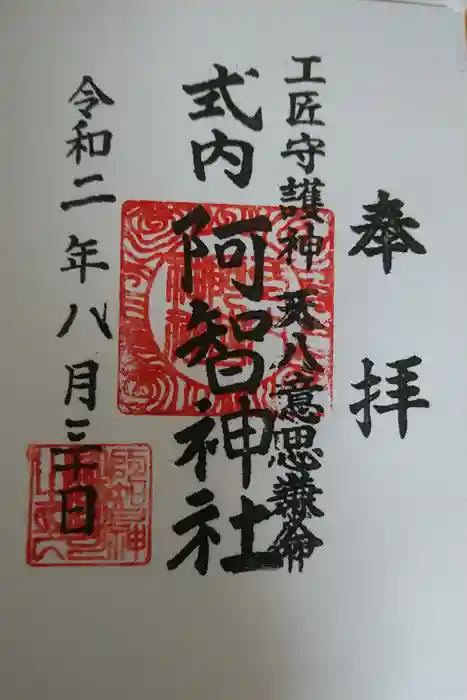 奉拝
工匠守護神 天八意思兼命
式内 阿智神社
令和二年八月三十日